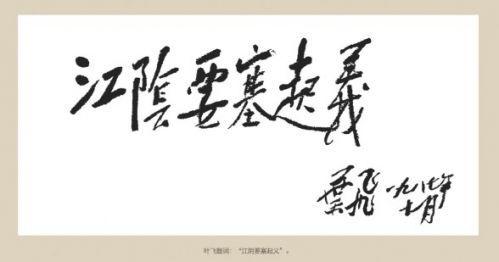 江陰要塞起義
葉飛 一九八七年
十一月
叶飞题词：“江阴要塞起义”。